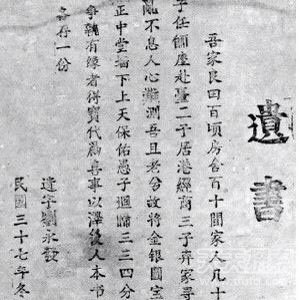 遺書
吾家良田百頃房舍百十間家人凡十
子任師座赴臺二子居港經商三子弃家尋
亂不息人心測吾且老故將金銀國宝
正中堂下上天保佑愚子迴歸三三四分
爭執有緣者得寶代為善事以澤後人本书
各存一份
遺字劉永發
民國三十七年冬